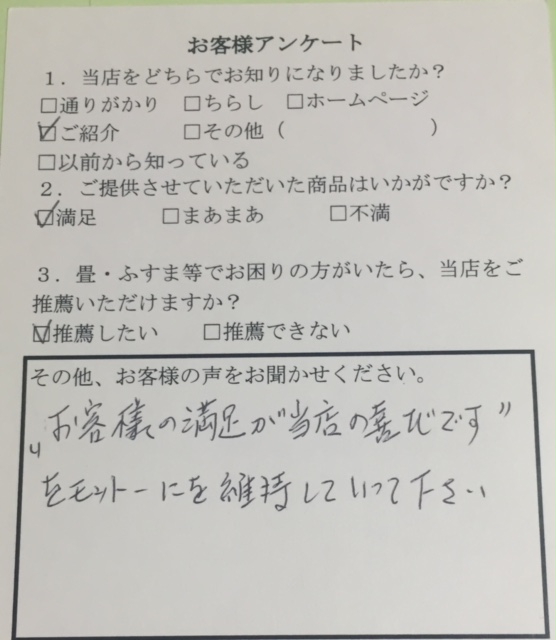 お客様アンケート
1．当店をどちらでお知りになりましたか？
□通りがかり　□ちらし　□ホームページ
☑ご紹介　□その他（　　　　　）
□以前から知っている
2．ご提供させていただいた商品はいかがですか？
☑満足　□まあまあ　□不満
3．畳・ふすま等でお困りの方がいたら、当店をご
推薦いただけますか？
☑推薦したい　□推薦できない
その他、お客様の声をお聞かせください。
〝お客様の満足が当店の喜びです〞
をモットーにを維持していって下さい